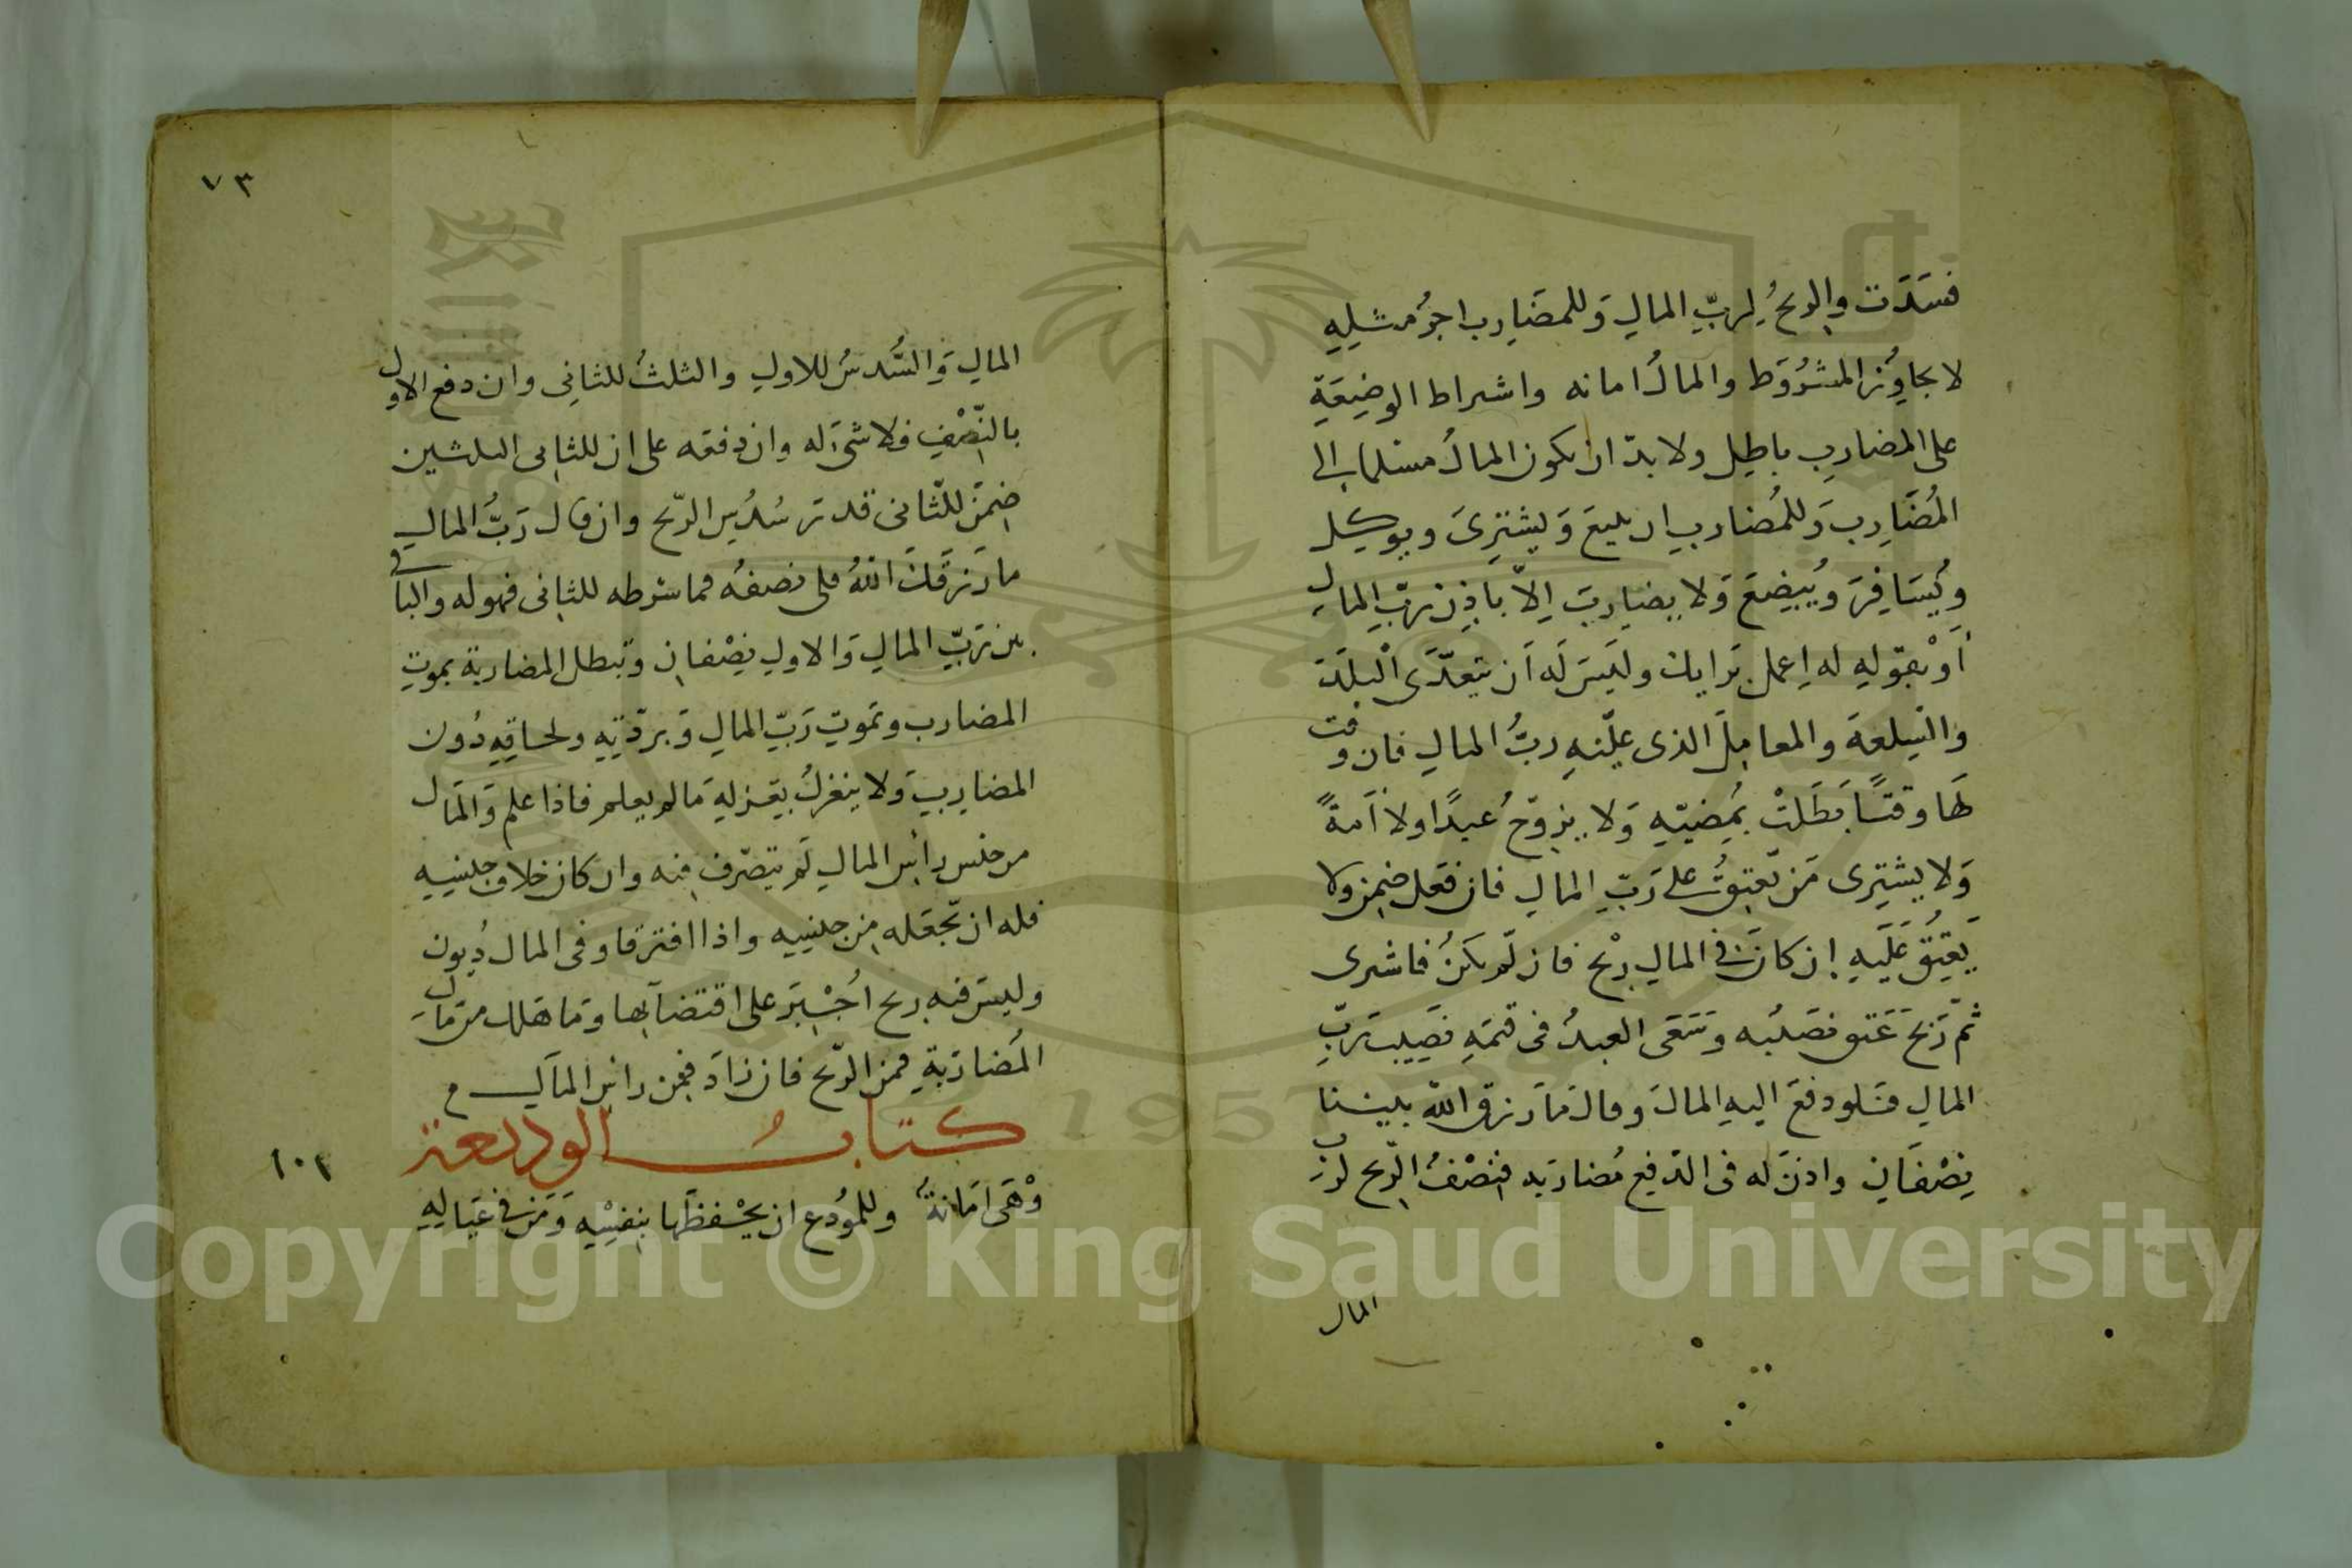 فسَدَت والربحُ لِربِّ المالِ وَللمضَارِب اجرُ مثلِهِ
لا يجاوُز المشرُوَط والمالُ امانه واشراط الوضِيعَةِ
على المضاربِ باطِل ولا بدّ ان يكون المالُ مسلما الى
المُضَارِب وَللمُضاربِ ان يبيعَ وَيشتَرِىَ ويوكِل
وَيُسَافِرَ وَيُبضِعَ وَلا يضارِبَ اِلاّ باذِن ربِّ المالِ
أوْ بقولِهِ له اِعمل بَرايك وليَس لَه اَن يتعدَّى البلَد
والسِلعةَ والمعامِلَ الذى عيّنهِ ربُّ المالِ فان وقت
لهَا وقتًا بَطَلتْ بمُضيّهِ وَلا يزوّجُ عبدًا ولا اَمةً
وَلا يشتِرى مَن يَعتِقُ على رَبِّ المالِ فان فعَل ضِمن ولا
يَعتِقُ عَليهِ اِن كانَ فى المالِ ربْح فان لَم يكنُ فاشرى
ثمّ رَبحَ عَتق نصَيبُه وَسَعَى العبدُ فى قيمَهِ نصَيب رَبِّ
المالِ فَلو دفعَ اليهِ المالَ وقالَ مَا رَزق اللّه بيننا
نِصْفَانِ واذنَ له فى الدّفِعِ مُضاربَه فنِصْفُ الرّبح لربِّ
المال
٧٣
المالِ وَالسُّدسُ للاولِ والثلثُ للثانِى وان دفع الاول
بالنِّصْفِ فلا شىَٔ له وان دفعَه على ان للثانِى الثلثين
ضِمَن للثّانى قدرَ سُدُسِ الرّبح وان قال رَبُّ المالِ
ما رَزقَكَ اللّهُ فلى نصفُه فما شرطه للثانى فهو له والباقى
بين رَبِّ المالِ وَالاولِ نِصْفانِ وتبطل المضاربة بموتِ
المضارب وبَموتِ رَبِّ المالِ وَبردّتِهِ ولحاقِهِ دُون
المضارِبِ وَلا ينعزلُ بعَزلِهِ مَالم يعلم فاذا علم وَالمَال
من جنس رأس المالِ لَم يتصرّف فيه وان كان خلاف جِنسِه
فله ان يَّجعَله مِن جنسِه واذا افترقا وفى المال دُيون
وليسَ فيه ربح اُجْبِرَ على اقتضآئها وَما هَلك من مَالِ
المُضارَبةِ فمن الرّبح فان زادَ فمِن راسِ المآلِ
كتابُ الوديعة
١٠٢
وَهَى امَانةُ وللمُودِع ان يحْفظَها بنفِسِه وَمَن فى عَيالِهِ
Copyright © King Saud University
1957